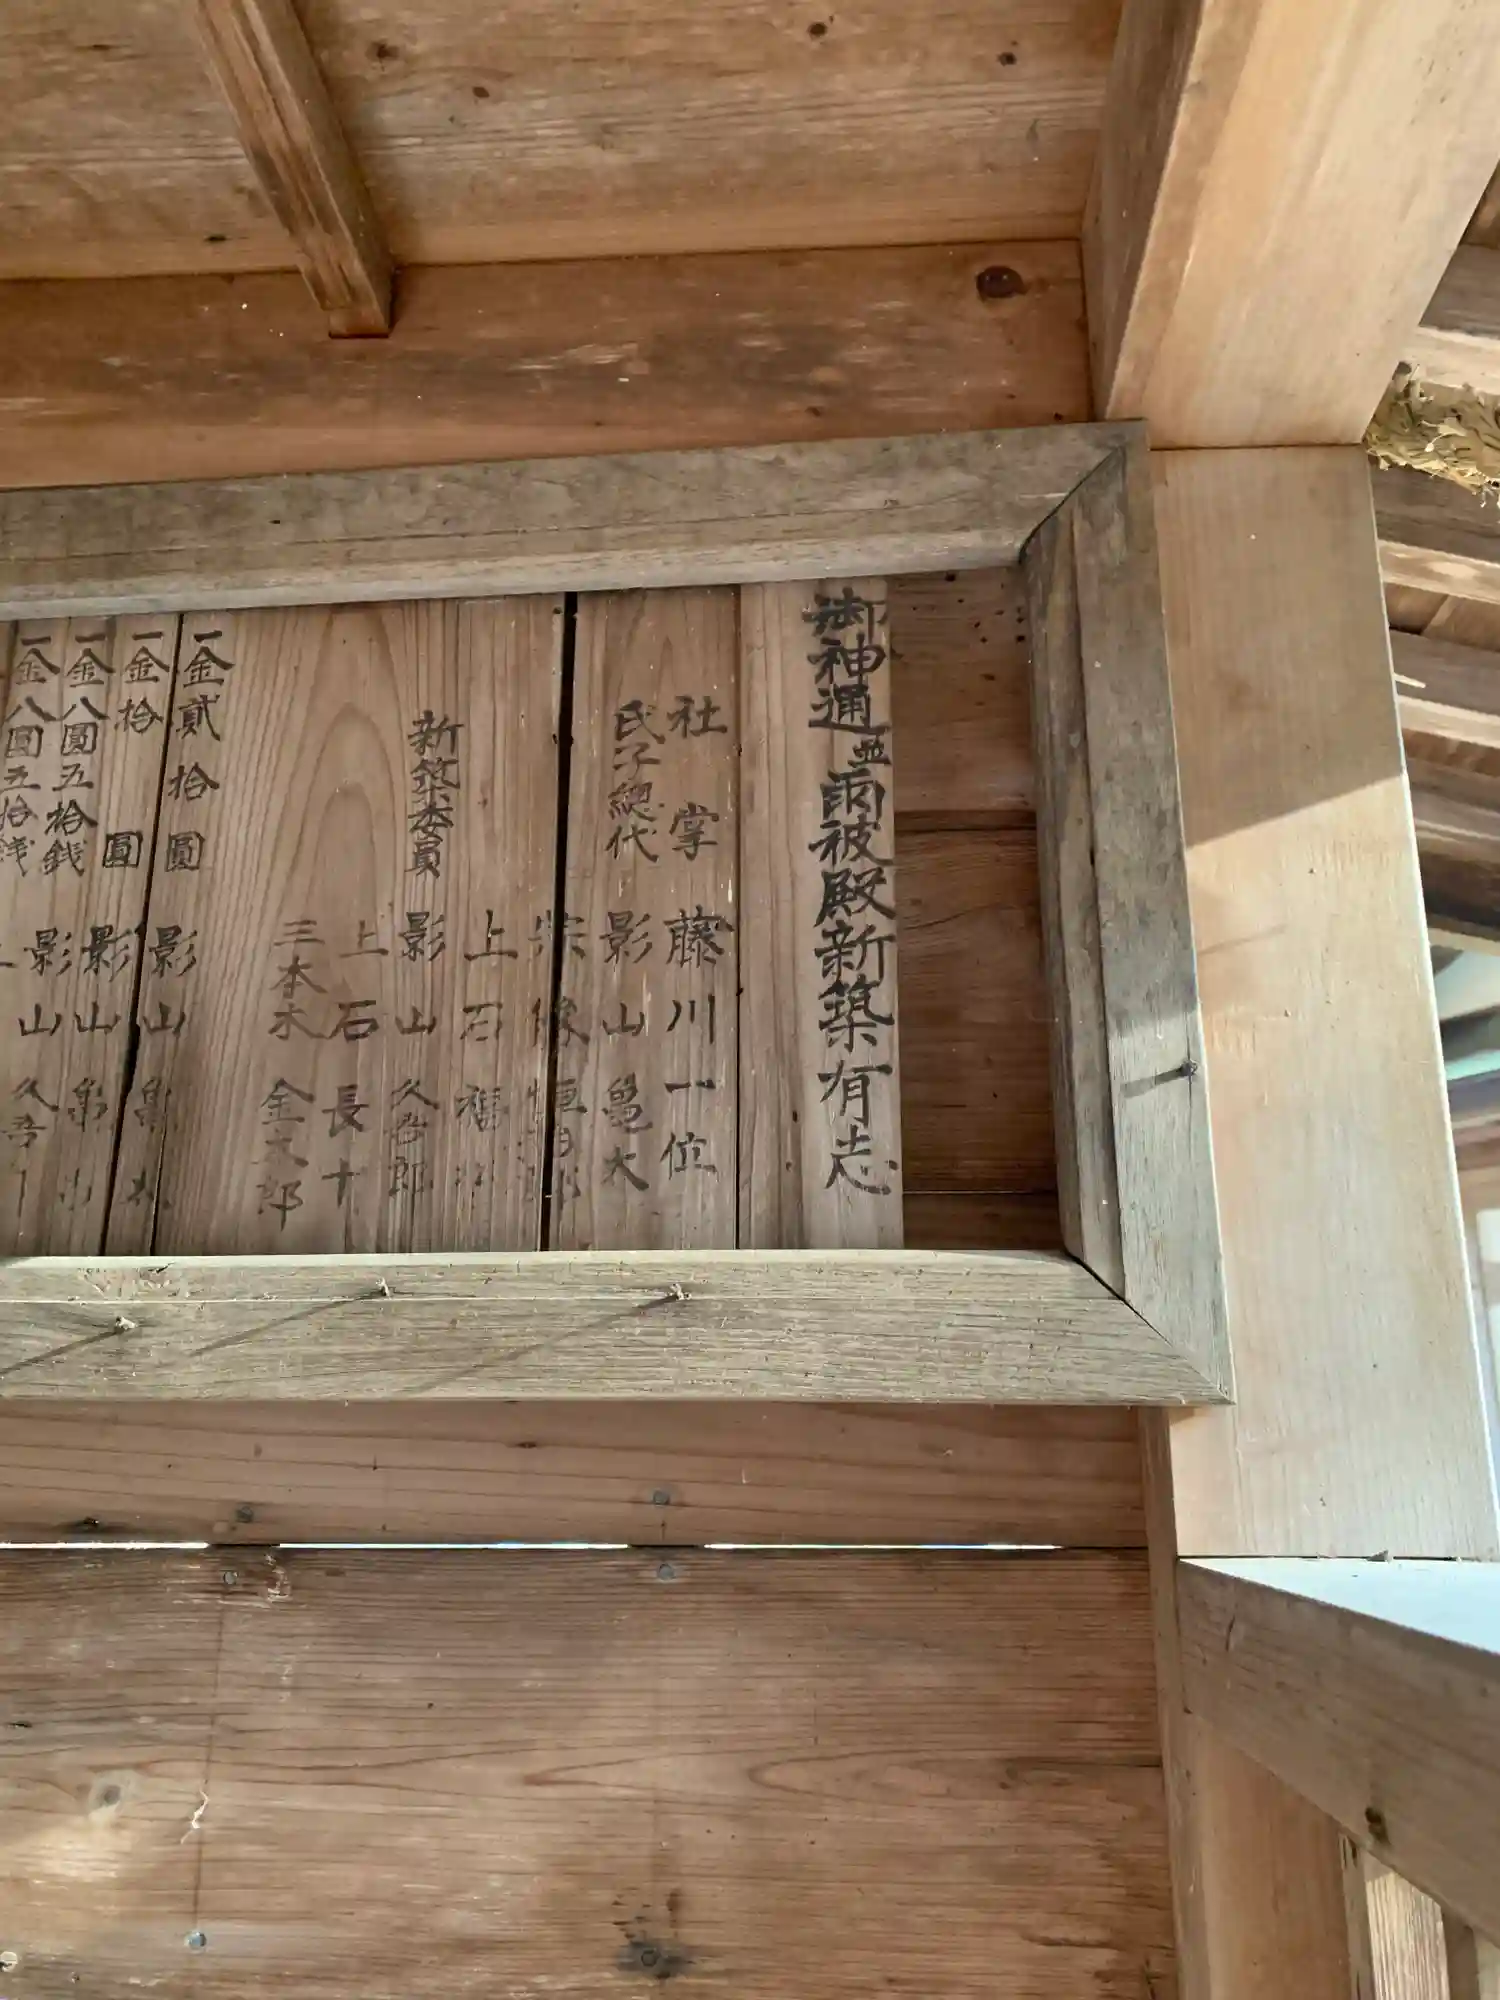 御神通並両被殿新築有志
社掌 藤川一位
氏子總代 影山亀太
宗像恒
上石福
新築委員 影山久吾郎
上石長十
三本木金太郎
一金貳拾圓 影山亀太
一金拾圓 影山亀
一金八圓五拾銭 影山久吾
一金八圓五拾銭